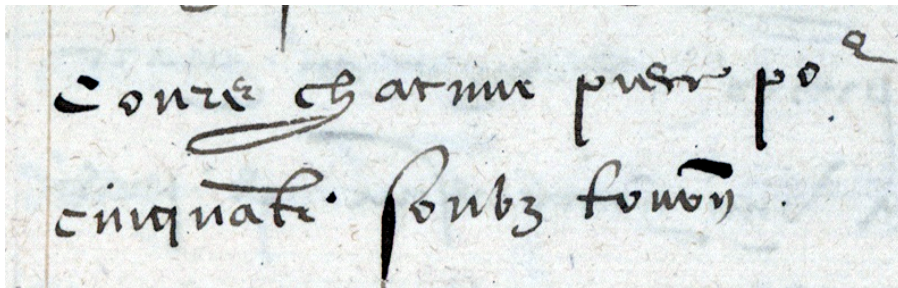 Coure chacune piece po^r
cinquate soubz touon